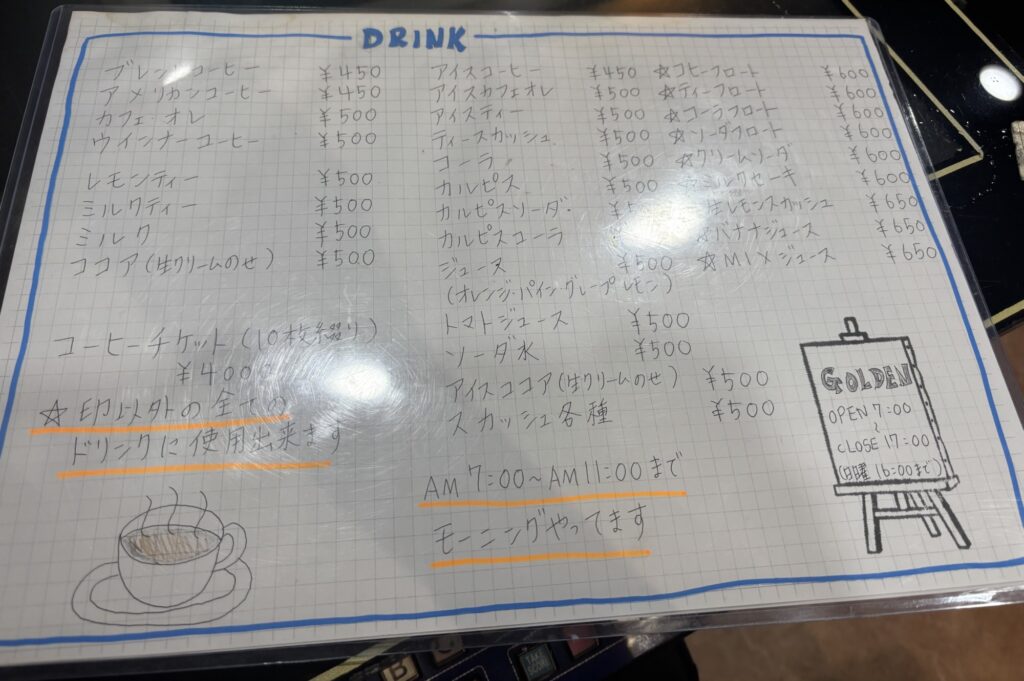 DRINK
ブレンドコーヒー ¥450
アメリカンコーヒー ¥450
カフェ・オレ ¥500
ウインナーコーヒー ¥500
レモンティー ¥500
ミルクティー ¥500
ミルク ¥500
ココア(生クリームのせ) ¥500
コーヒーチケット(10枚綴り)
¥400
☆印以外の全ての
ドリンクに使用出来ます
アイスコーヒー ¥450
アイスカフェオレ ¥500
アイスティー ¥500
ティースカッシュ ¥500
コーラ ¥500
カルピス ¥500
カルピスソーダ
カルピスコーラ
ジュース ¥500
(オレンジ・パイン・グレープ レモン)
トマトジュース ¥500
ソーダ水 ¥500
アイスココア(生クリームのせ) ¥500
スカッシュ各種 ¥500
AM 7:00～AM11:00まで
モーニングやってます
☆コヒーフロート ¥600
☆ティーフロート ¥600
☆コーラフロート ¥600
☆ソーダフロート ¥600
☆クリームソーダ ¥600
☆ミルクセーキ ¥600
生レモンスカッシュ ¥650
☆バナナジュース ¥650
☆MIXジュース ¥650
GOLDEN
OPEN 7:00
～
CLOSE 17:00
(日曜 16:00まで)
B